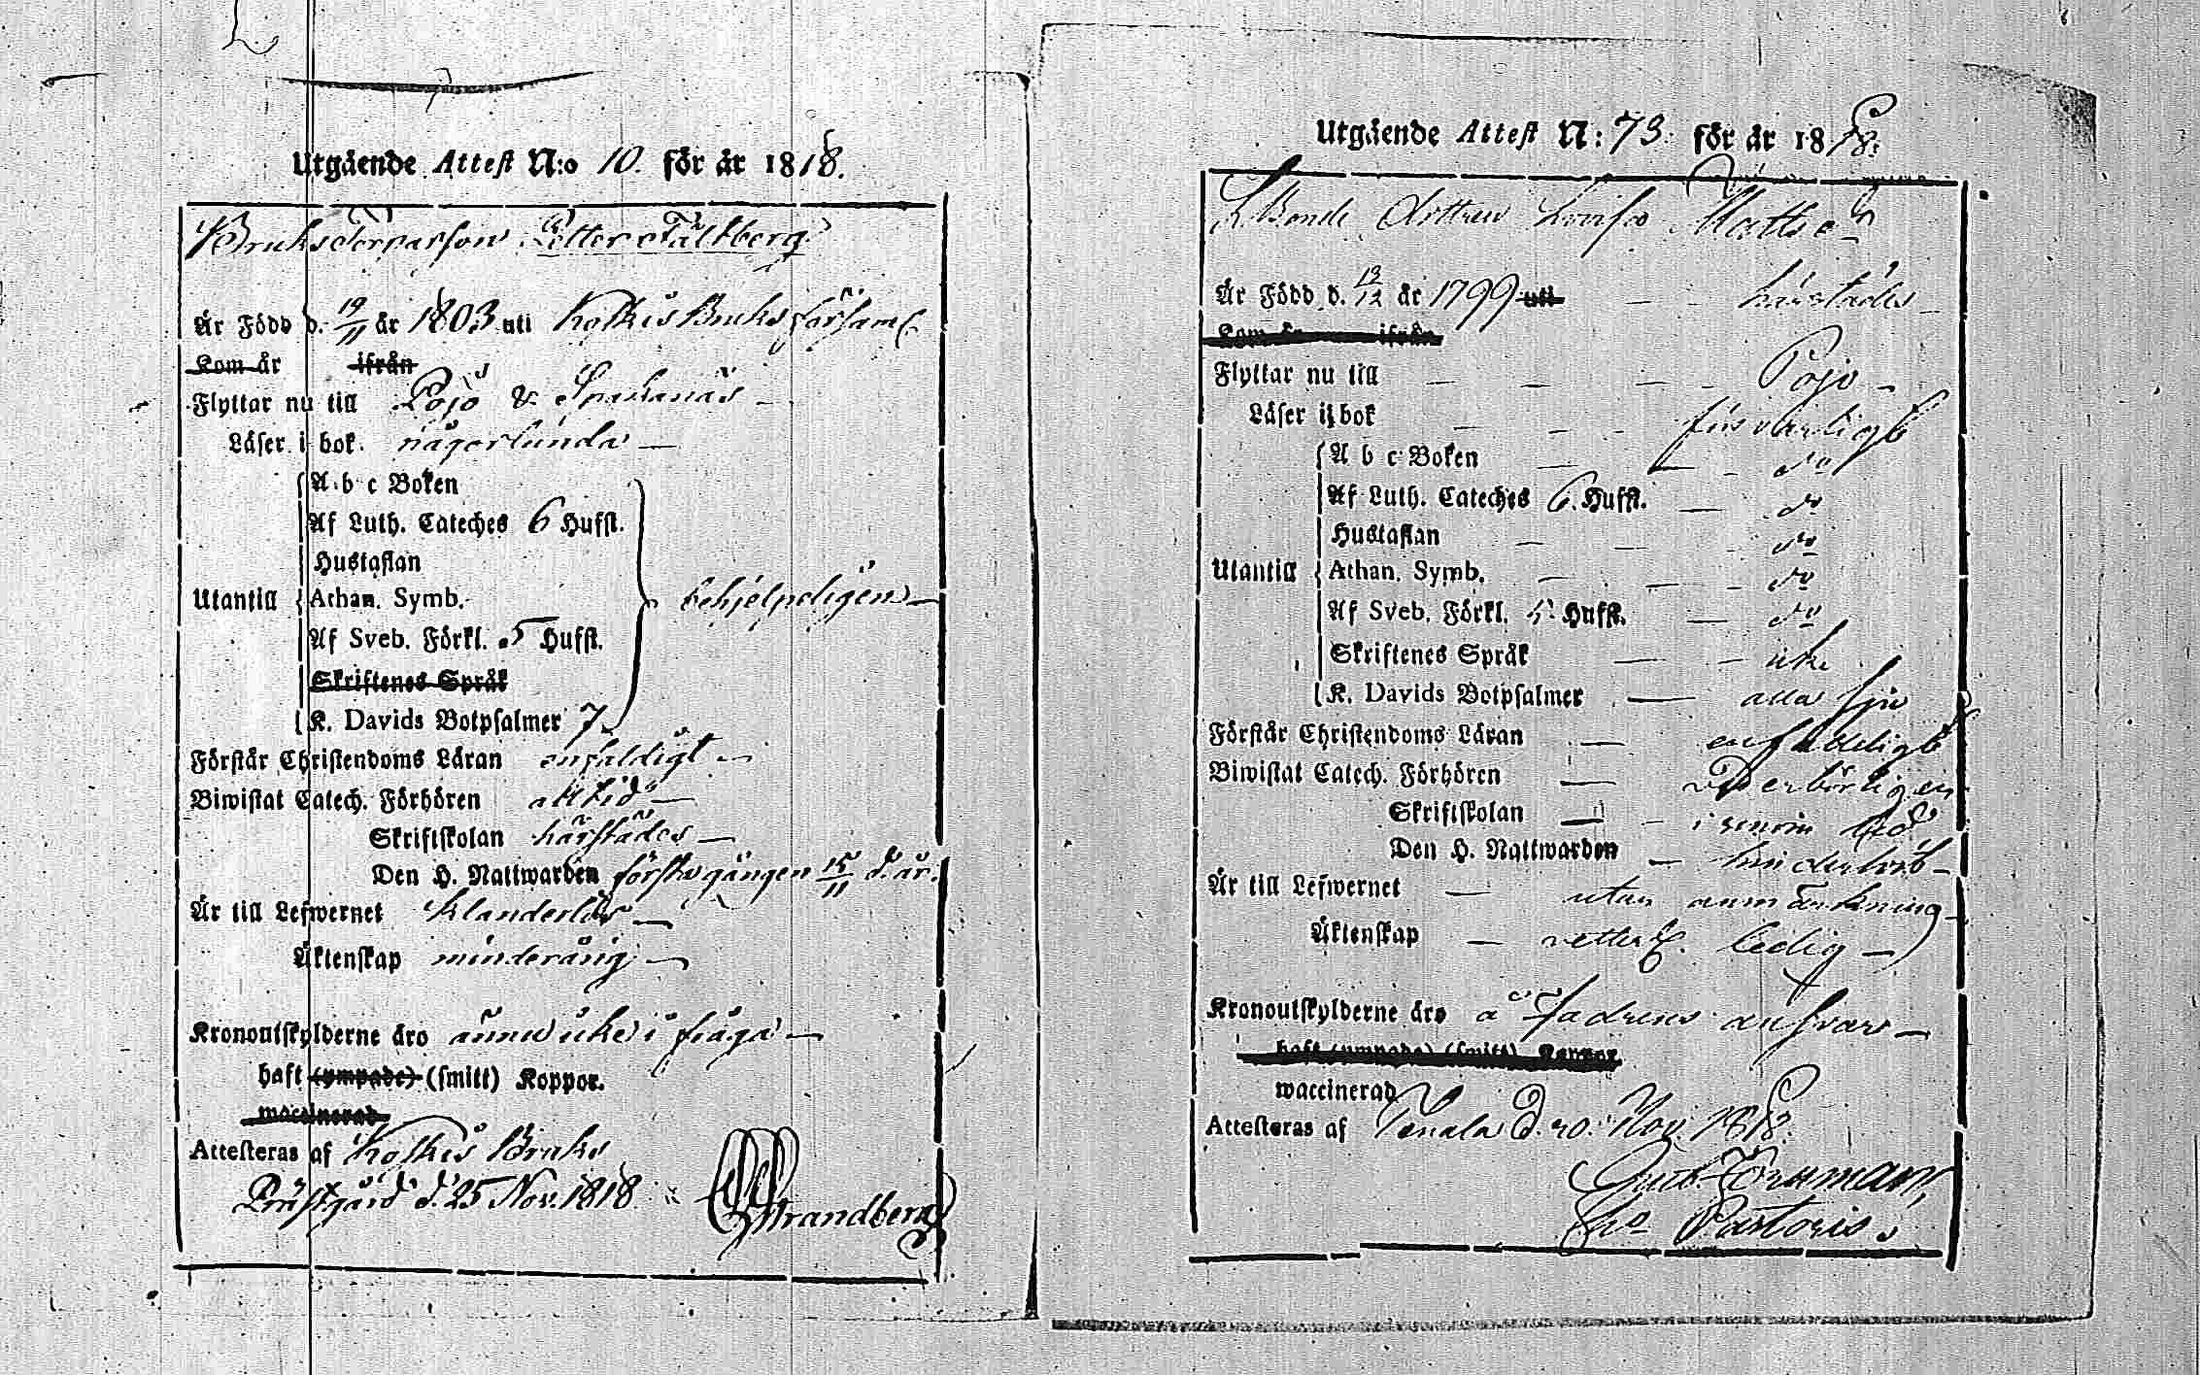 Utgående Attest N:o 10. för år 1818.
Petter Fältberg.
Är Född d. 19/11 år 1803 uti Koskis Bruks församl.
Kom år ifrån
Flyttar nu till Pojo &
Läser i bok. någorlunda —
A b c Boken
Af Luth. Cateches 6 Hufst.
Hustaflan
Utantill Athan. Symb. behjelpeligen —
Af Sveb. Förkl. 5 Hufst.
Skriftenes Språk
K. Davids Botpsalmer 7
Förstår Christendoms Läran enfaldigt —
Biwistat Catech. Förhören alltid —
Skriftskolan härstädes —
Den H. Nattwarden första gången 15/11 d. år.
Är till Lefwernet klanderlös —
Äktenskap minderårig —
Kronoutskylderne äro ännu icke i fråga —
haft (ympade) (smitt) Koppor.
waccinerad
Attesteras af Koskis Bruks
Prästgård d. 25 Nov. 1818.
Strandberg
Utgående Attest N: 73. för år 1818.
Bonde Dottren Lovisa Matts
Är Född d. 13/12 år 1799 uti — — härstädes
Kom år ifrån
Flyttar nu till — — — Pojo —
Läser i bok — — försvarligt
A b c Boken — — — do
Af Luth. Cateches 6. Hufst. — do
Hustaflan — — do
Utantill Athan. Symb. — — — do
Af Sveb. Förkl. 5 Hufst. — do
Skriftenes Språk — — icke
K. Davids Botpsalmer — alla sju
Förstår Christendoms Läran — enfaldeligt
Biwistat Catech. Förhören — wederbörligen
Skriftskolan — — i sinom tid
Den H. Nattwarden —
Är till Lefwernet — utan anmärkning —
Äktenskap — ledig —
Kronoutskylderne äro å Fadrens ansvar —
haft (ympade) (smitt) Koppor
waccinerad
Attesteras af Tenala d. 20. Nov. 1818.
Pastoris